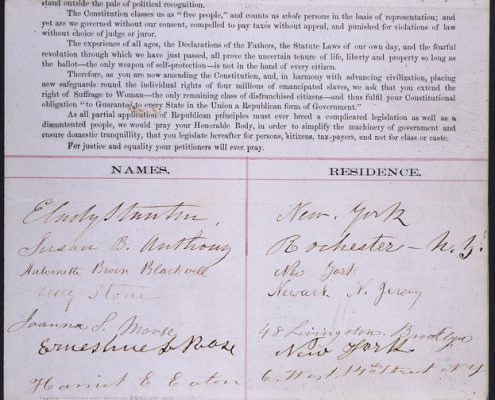 stand outside the pale of political recognition.
The Constitution classes us as "free people," and counts us whole persons in the basis of representation; and
yet are we governed without our consent, compelled to pay taxes without appeal, and punished for violations of law
without choice of judge or juror.
The experience of all ages, the Declarations of the Fathers, the Statute Laws of our own day, and the fearful
revolution through which we have just passed, all prove the uncertain tenure of life, liberty and property so long as
the ballot—the only weapon of self-protection—is not in the hand of every citizen.
Therefore, as you are now amending the Constitution, and, in harmony with advancing civilization, placing
new safeguards round the individual rights of four millions of emancipated slaves, we ask that you extend the
right of Suffrage to Woman—the only remaining class of disfranchised citizens—and thus fulfil your Constitutional
obligation "to Guarantee to every State in the Union a Republican form of Government."
As all partial application of Republican principles must ever breed a complicated legislation as well as a
discontented people, we would pray your Honorable Body, in order to simplify the machinery of government and
ensure domestic tranquillity, that you legislate hereafter for persons, citizens, tax-payers, and not for class or caste.
For justice and equality your petitioners will ever pray.
NAMES. RESIDENCE.
E Cady Stanton, New York
Susan B. Anthony Rochester - N.Y.
Antoinette Brown Blackwell New York
Lucy Stone Newark N. Jersey
Joanna S. Morse 48 Livingston. Brooklyn
Ernestine L Rose New York
Harriet E Eaton 6. West. 14th Street N.Y